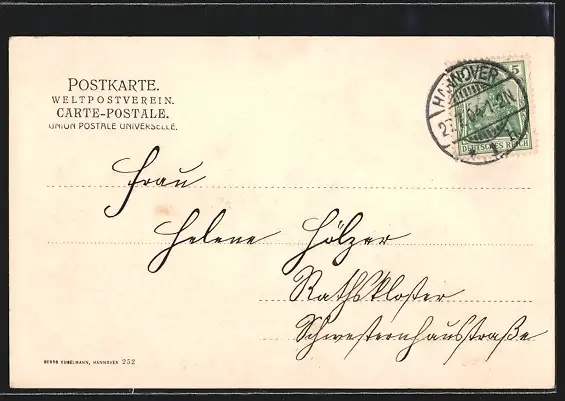 POSTKARTE.
WELTPOSTVEREIN.
CARTE-POSTALE.
UNION POSTALE UNIVERSELLE.
HANNOVER
1-2N
5
DEUTSCHES REICH
Frau
Helene Hölzer
Rathskloster
Schwesternhausstraße
HANNOVER 252